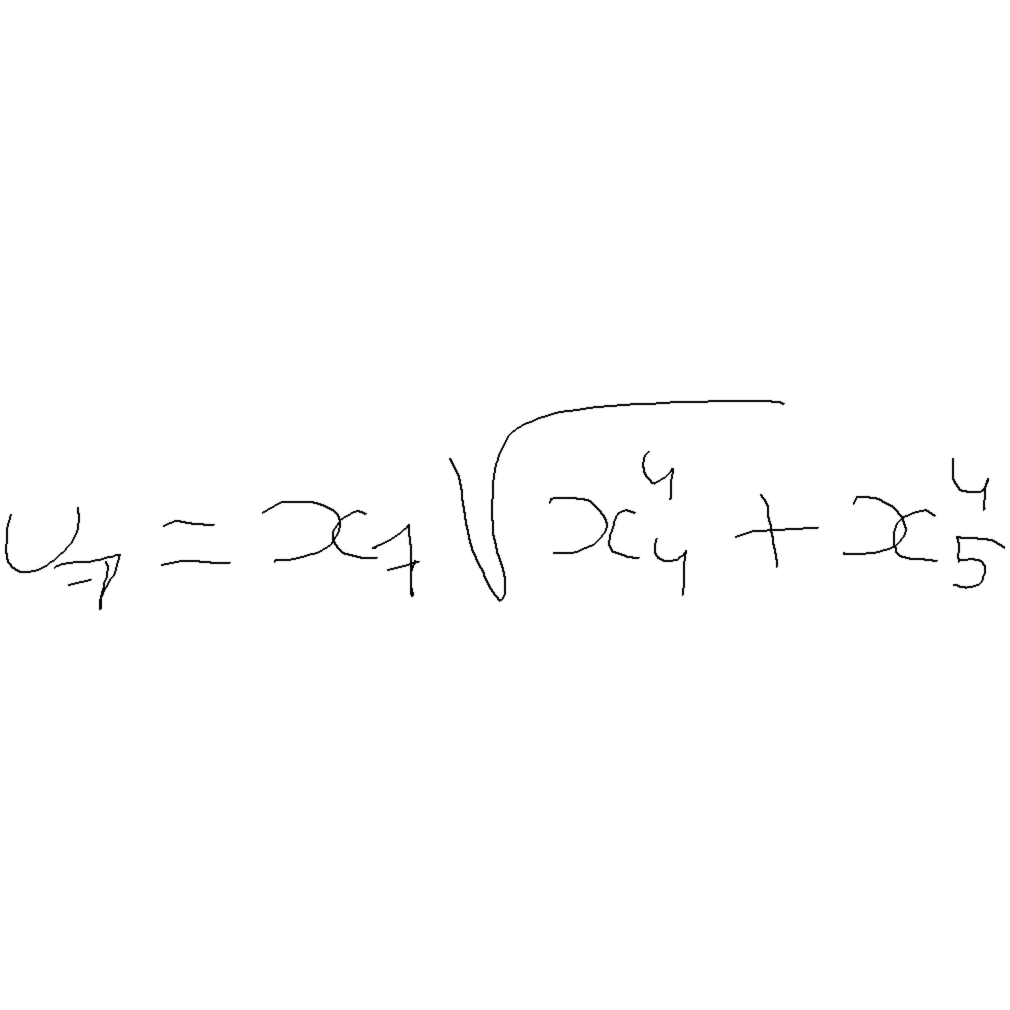 u₇ = x₇ √(x₄⁴ + x₅⁴)